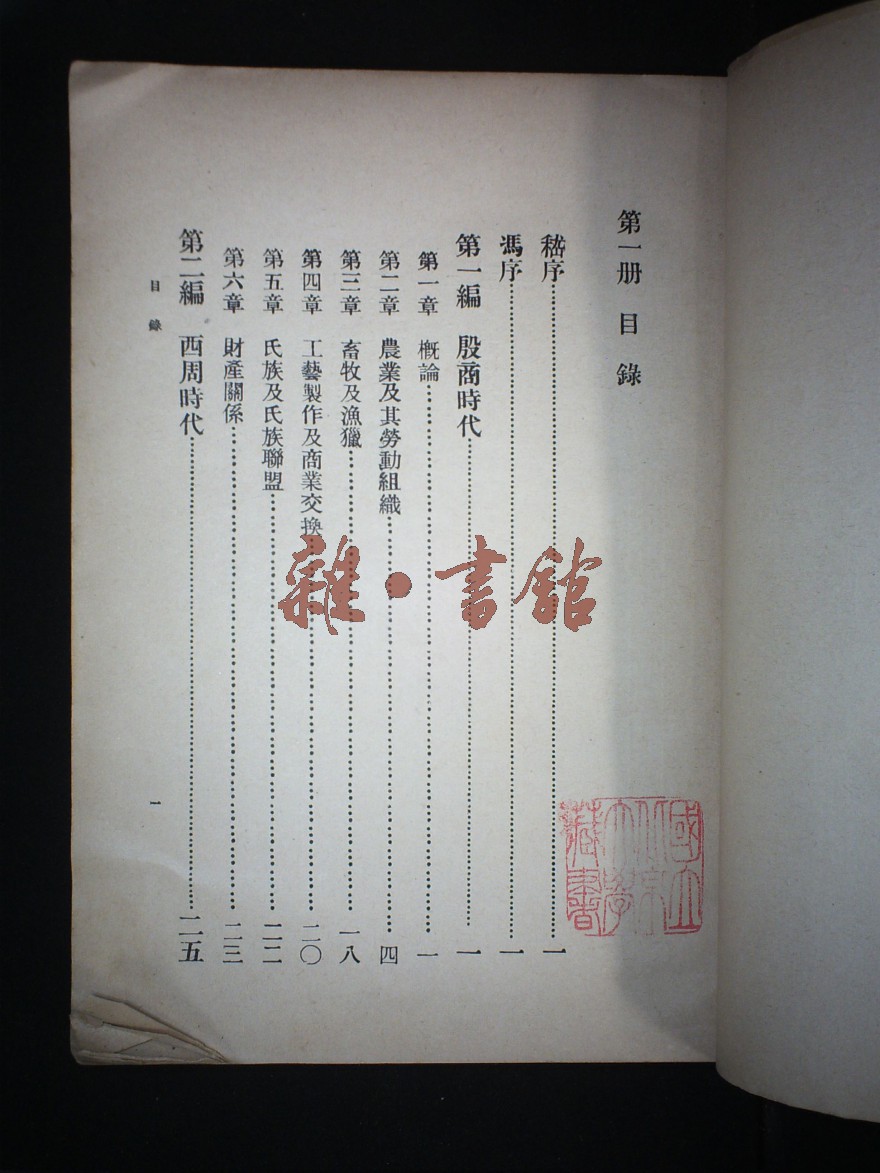 第一册 目錄
嵇序 一
馮序 一
第一編 殷商時代 一
第一章 概論 一
第二章 農業及其勞動組織 四
第三章 畜牧及漁獵 一八
第四章 工藝製作及商業交換 二〇
第五章 氏族及氏族聯盟 二二
第六章 財產關係 二三
第二編 西周時代 二五
目錄
一
雜·書館
國立
北京
大學
藏書